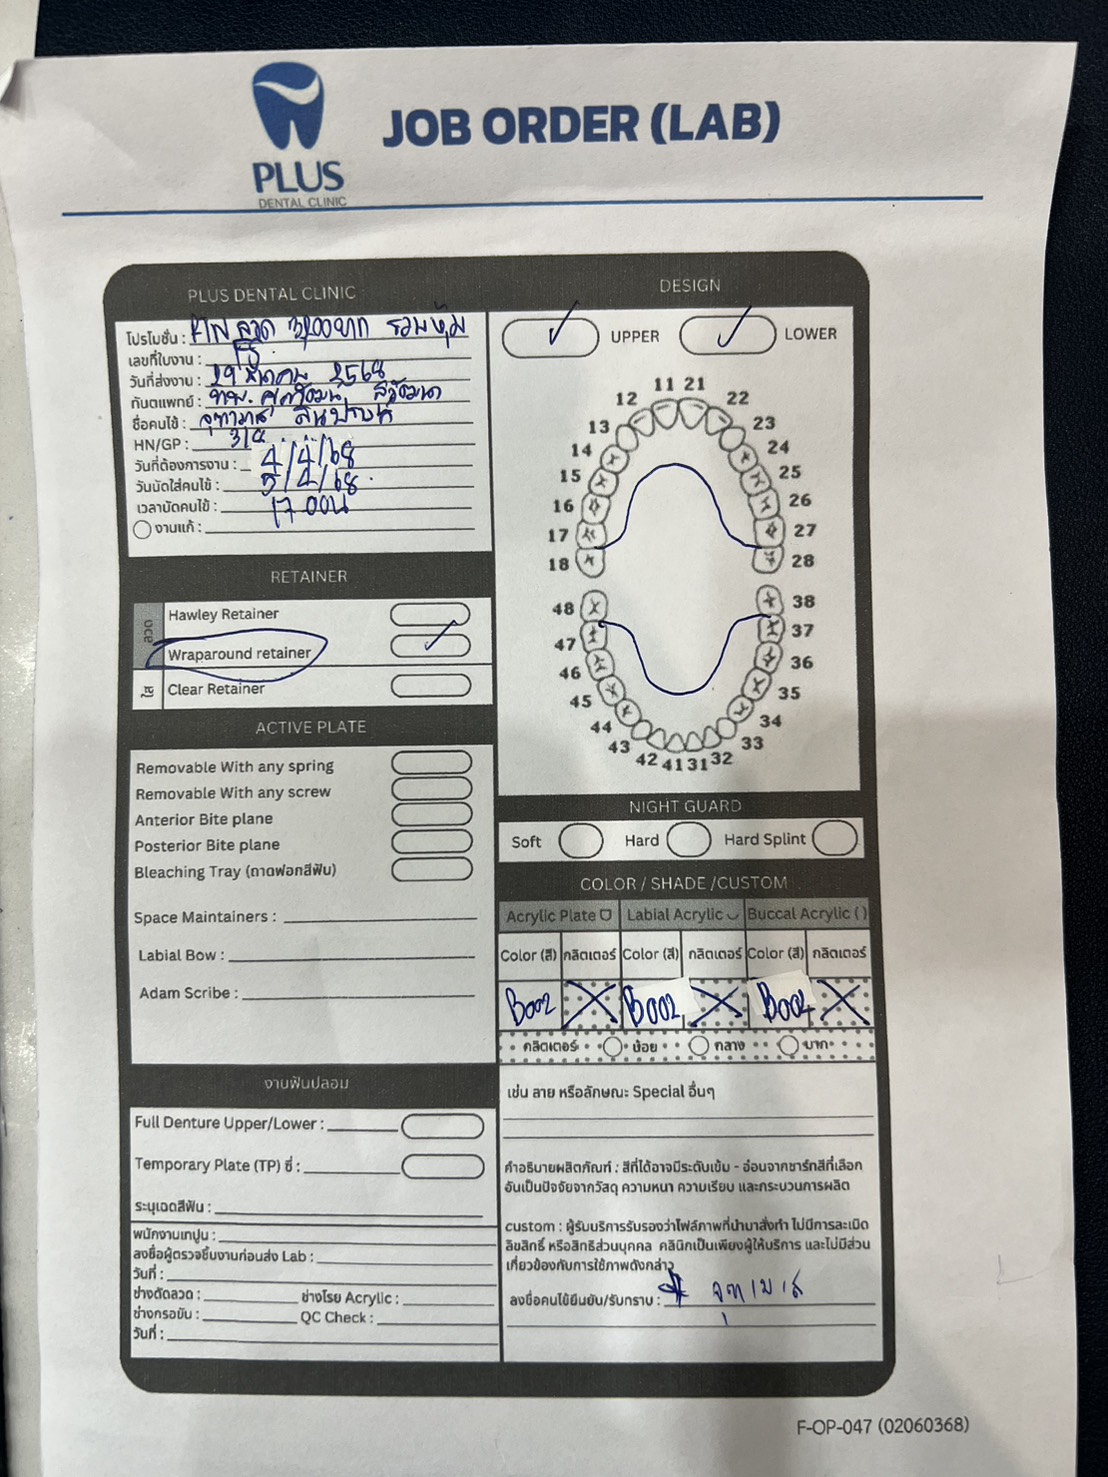 PLUS
DENTAL CLINIC
JOB ORDER (LAB)
PLUS DENTAL CLINIC
โปรโมชั่น : ลวด 3,200บาท รวมหุ้ม
เลขที่ใบงาน :
วันที่ส่งงาน : 29 มีนาคม 2568
ทันตแพทย์ : ทพ.
ชื่อคนไข้ :
HN/GP :
วันที่ต้องการงาน : 4/4/68
วันนัดใส่คนไข้ : 5/4/68
เวลานัดคนไข้ : 17.00น
งานแก้ :
RETAINER
ลวด
Hawley Retainer
Wraparound retainer
ใส
Clear Retainer
ACTIVE PLATE
Removable With any spring
Removable With any screw
Anterior Bite plane
Posterior Bite plane
Bleaching Tray (ถาดฟอกสีฟัน)
Space Maintainers :
Labial Bow :
Adam Scribe :
งานฟันปลอม
Full Denture Upper/Lower :
Temporary Plate (TP) ซี่ :
ระบุเฉดสีฟัน :
พนักงานเทปูน :
ลงชื่อผู้ตรวจชิ้นงานก่อนส่ง Lab :
วันที่ :
ช่างดัดลวด : ช่างโรย Acrylic :
ช่างกรอขัน : QC Check :
วันที่ :
DESIGN
UPPER LOWER
11 21
12 22
13 23
14 24
15 25
16 26
17 27
18 28
48 38
47 37
46 36
45 35
44 34
43 33
42 41 31 32
NIGHT GUARD
Soft Hard Hard Splint
COLOR / SHADE /CUSTOM
Acrylic Plate Labial Acrylic Buccal Acrylic ( )
Color (สี) กลิตเตอร์ Color (สี) กลิตเตอร์ Color (สี) กลิตเตอร์
B002 B002 B002
กลิตเตอร์ น้อย กลาง มาก
เช่น ลาย หรือลักษณะ Special อื่นๆ
คำอธิบายผลิตภัณฑ์ : สีที่ได้อาจมีระดับเข้ม - อ่อนจากชาร์ทสีที่เลือก
อันเป็นปัจจัยจากวัสดุ ความหนา ความเรียบ และกระบวนการผลิต
custom : ผู้รับบริการรับรองว่าไฟล์ภาพที่นำมาสั่งทำ ไม่มีการละเมิด
ลิขสิทธิ์ หรือสิทธิส่วนบุคคล คลินิกเป็นเพียงผู้ให้บริการ และไม่มีส่วน
เกี่ยวข้องกับการใช้ภาพดังกล่าว
ลงชื่อคนไข้ยืนยัน/รับทราบ :
F-OP-047 (02060368)